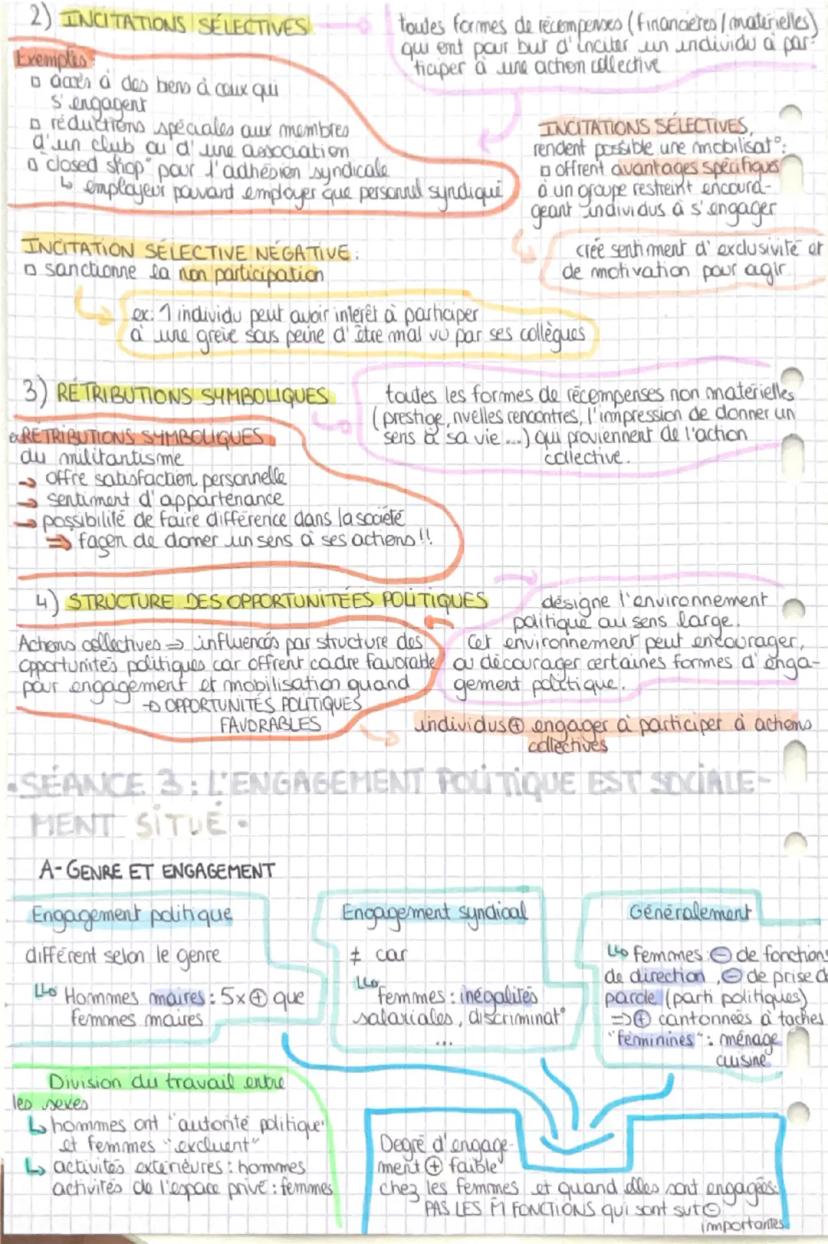 2) INCITATIONS SÉLECTIVES
toutes formes de récompenses (financières/matérielles)
qui ont pour but d'inciter un individu à par-
ticiper à une action collective
Exemples:
▫ accès à des biens à ceux qui
s'engagent
▫ réductions spéciales aux membres
d'un club ou d'une association
▫ "closed shop" pour l'adhésion syndicale
↳ employeur pouvant employer que personnel syndiqué
INCITATIONS SÉLECTIVES,
rendent possible une mobilisat°:
▫ offrent avantages spécifiques
à un groupe restreint encoura-
geant individus à s'engager
crée sentiment d'exclusivité et
de motivation pour agir
INCITATION SÉLECTIVE NÉGATIVE:
▫ sanctionne la non participation
ex: 1 individu peut avoir intérêt à participer
à une grève sous peine d'être mal vu par ses collègues
3) RÉTRIBUTIONS SYMBOLIQUES
toutes les formes de récompenses non matérielles
(prestige, nvelles rencontres, l'impression de donner un
sens à sa vie...) qui proviennent de l'action
collective.
RÉTRIBUTIONS SYMBOLIQUES
du militantisme
→ offre satisfaction personnelle
→ sentiment d'appartenance
→ possibilité de faire différence dans la société
⇒ façon de donner un sens à ses actions!!
4) STRUCTURE DES OPPORTUNITÉES POLITIQUES
désigne l'environnement
politique au sens large.
Cet environnement peut encourager,
ou décourager certaines formes d'enga-
gement politique.
Actions collectives ⇒ influencés par structure des
opportunités politiques car offrent cadre favorable
pour engagement et mobilisation quand
→ OPPORTUNITÉS POLITIQUES
FAVORABLES
individus ⊕ engager à participer à actions
collectives
•SÉANCE 3: L'ENGAGEMENT POLITIQUE EST SOCIALE-
MENT SITUÉ•
A- GENRE ET ENGAGEMENT
Engagement politique
différent selon le genre
↳ Hommes maires: 5x ⊕ que
femmes maires
Engagement syndical
≠ car
↳ femmes: inégalités
salariales, discriminat°
...
Généralement
↳ Femmes: ⊖ de fonctions
de direction, ⊖ de prise de
parole (parti politiques)
⇒ ⊕ cantonnées à taches
"féminines": ménage
cuisine
Division du travail entre
les sexes
↳ hommes ont "autorité politique"
et femmes "excluent"
↳ activités extérieures: hommes
activités de l'espace privé: femmes
Degré d'engage-
ment ⊕ faible
chez les femmes et quand elles sont engagées:
PAS LES M̂ FONCTIONS qui sont sut ⊖
importantes